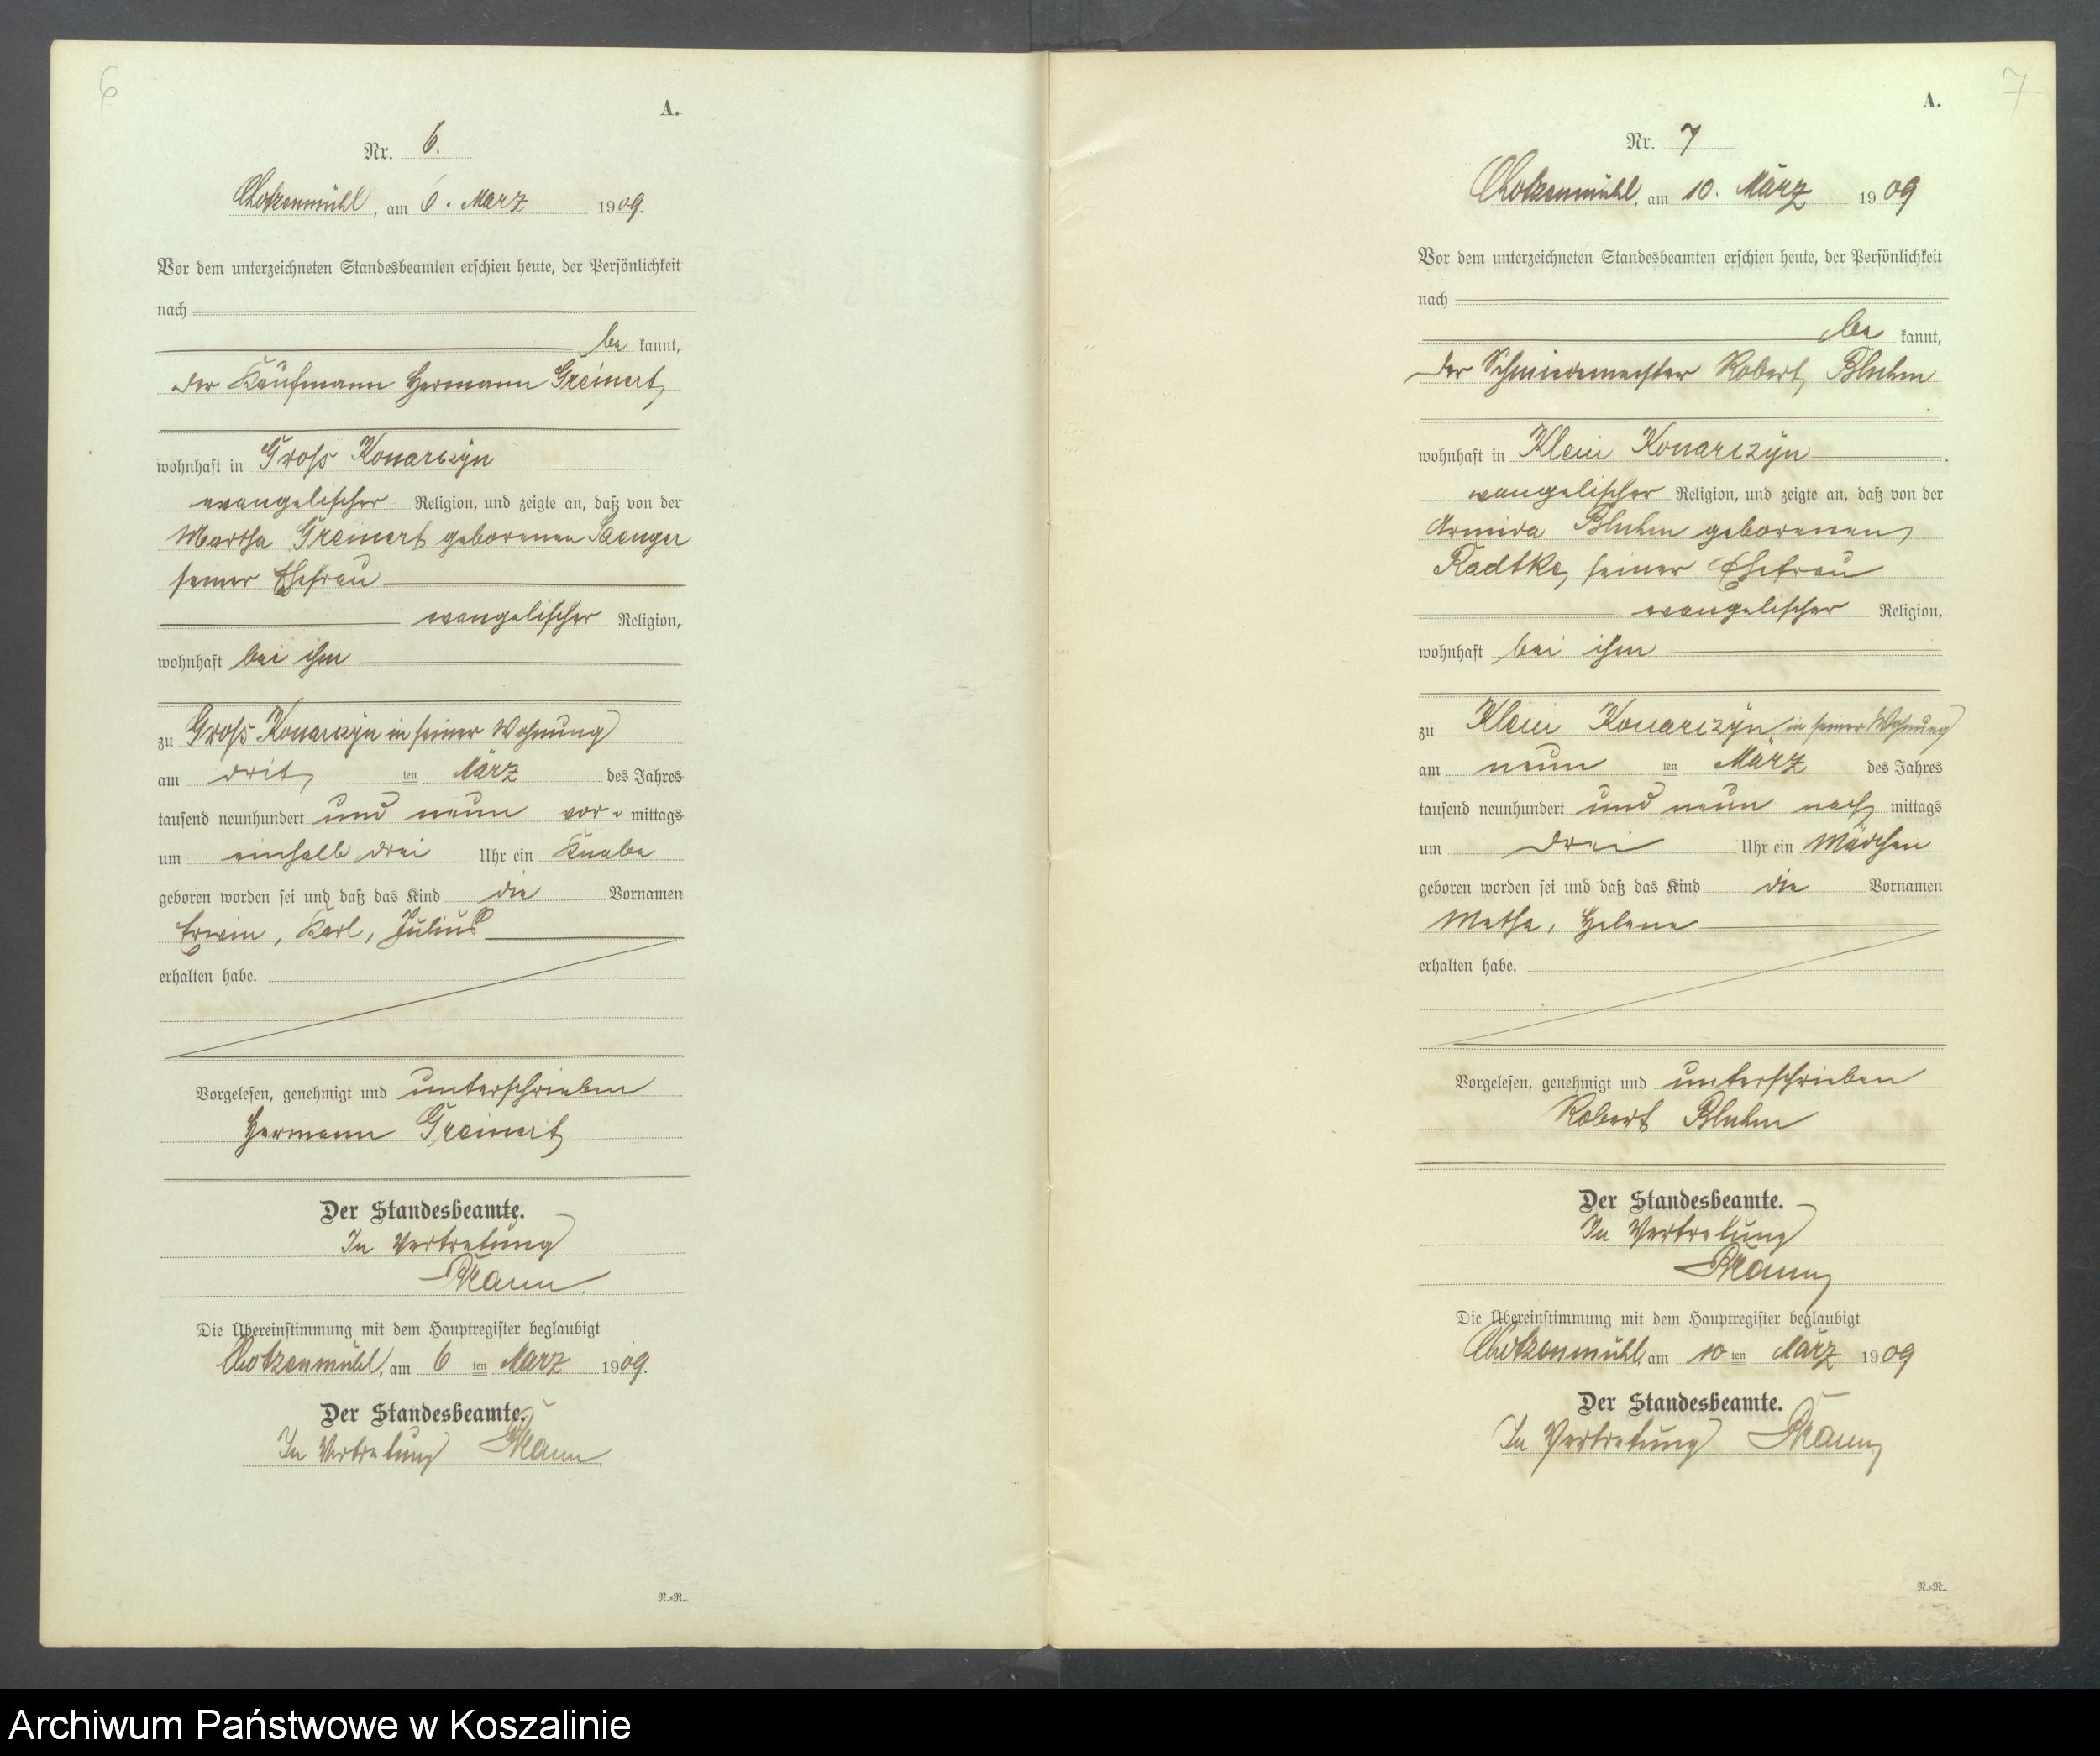 6
A.
Nr. 6.
Chotzenmühl, am 6. März 1909.
Vor dem unterzeichneten Standesbeamten erschien heute, der Persönlichkeit
nach
be kannt,
der Kaufmann Hermann Greinert
wohnhaft in Gross Konarczyn
evangelischer Religion, und zeigte an, daß von der
Martha Greinert geborenen Saenger
seiner Ehefrau
evangelischer Religion,
wohnhaft bei ihm
zu Gross Konarczyn in seiner Wohnung
am drit ten März des Jahres
tausend neunhundert und neun vor- mittags
um einhalb drei Uhr ein Knabe
geboren worden sei und daß das Kind die Vornamen
Erwin, Karl, Julius
erhalten habe.
Vorgelesen, genehmigt und unterschrieben
Hermann Greinert
Der Standesbeamte.
In Vertretung
Die Übereinstimmung mit dem Hauptregister beglaubigt
Chotzenmühl, am 6 ten März 1909.
Der Standesbeamte.
In Vertretung
N.-R.
7
A.
Nr. 7
Chotzenmühl, am 10. März 1909
Vor dem unterzeichneten Standesbeamten erschien heute, der Persönlichkeit
nach
be kannt,
der Schmiedemeister Robert Bluhm
wohnhaft in Klein Konarczyn
evangelischer Religion, und zeigte an, daß von der
Armida Bluhm geborenen
Radtke, seiner Ehefrau
evangelischer Religion,
wohnhaft bei ihm
zu Klein Konarczyn in seiner Wohnung
am neun ten März des Jahres
tausend neunhundert und neun nach mittags
um drei Uhr ein Mädchen
geboren worden sei und daß das Kind die Vornamen
Metha, Helene
erhalten habe.
Vorgelesen, genehmigt und unterschrieben
Robert Bluhm
Der Standesbeamte.
In Vertretung
Die Übereinstimmung mit dem Hauptregister beglaubigt
Chotzenmühl, am 10 ten März 1909
Der Standesbeamte.
In Vertretung
N.-R.
Archiwum Państwowe w Koszalinie